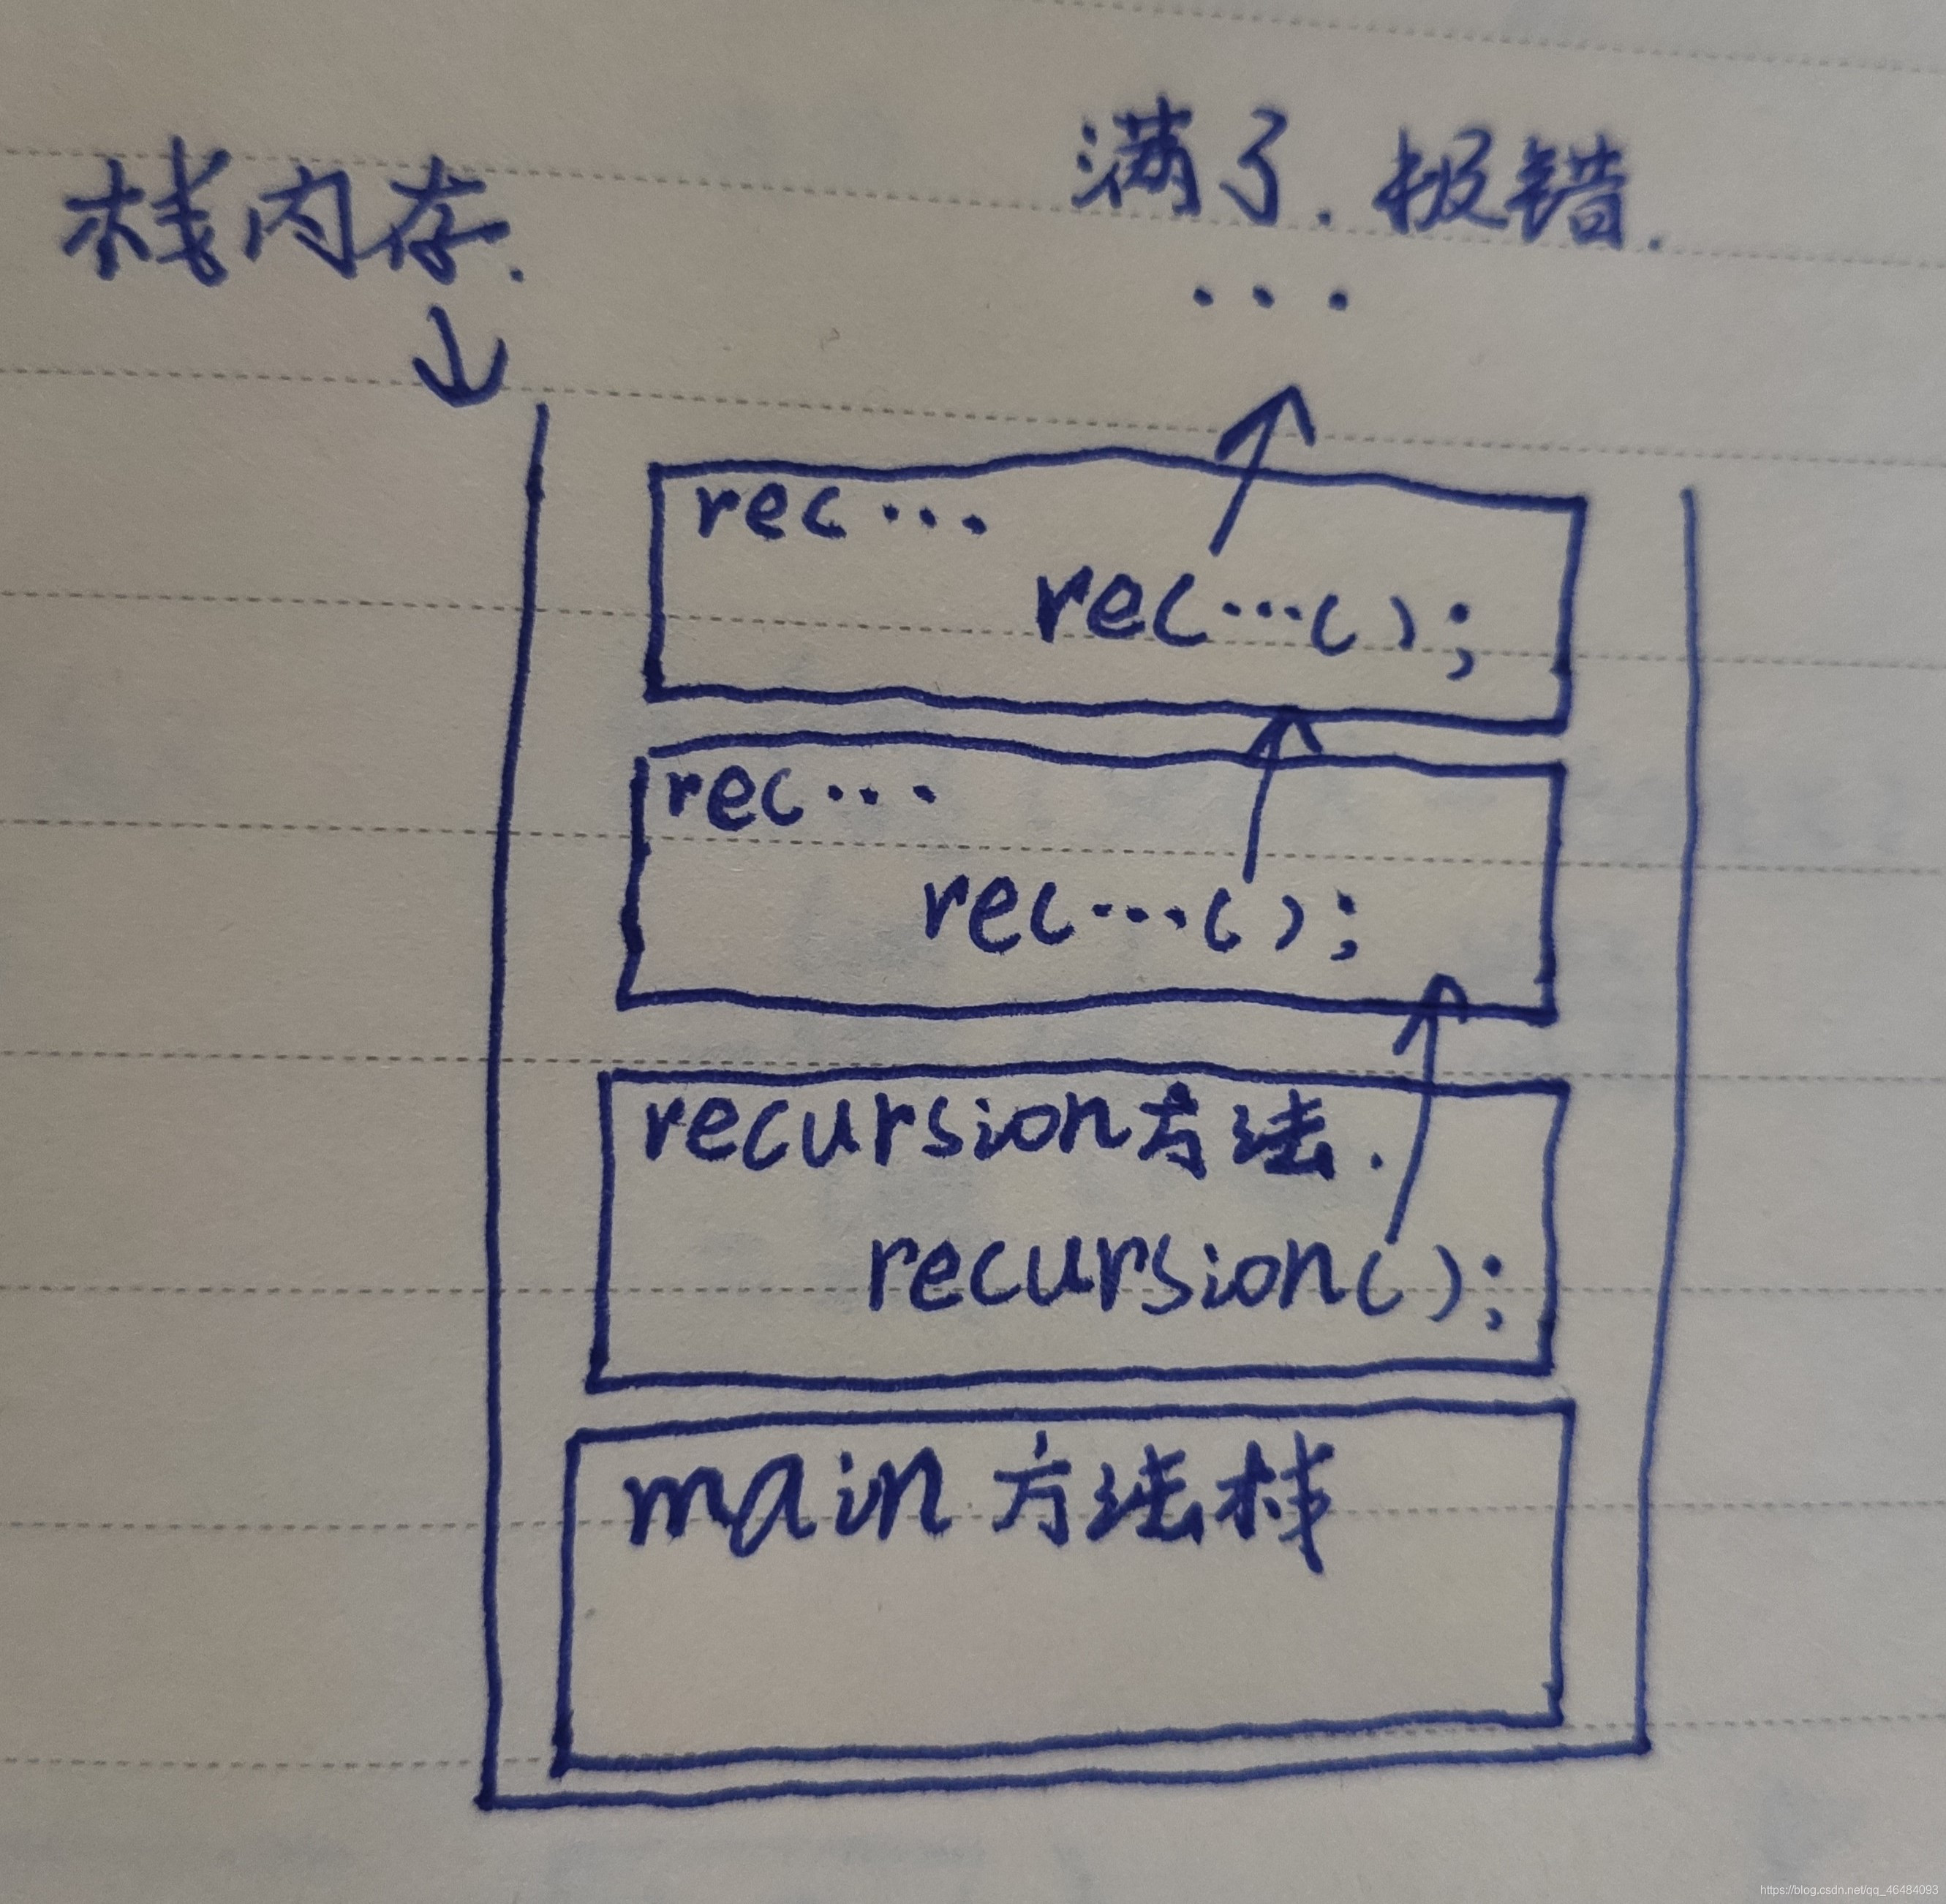 栈内存.
满了.报错.
...
rec...
rec...();
rec...
rec...();
recursion方法.
recursion();
main方法栈
https://blog.csdn.net/qq_46484093